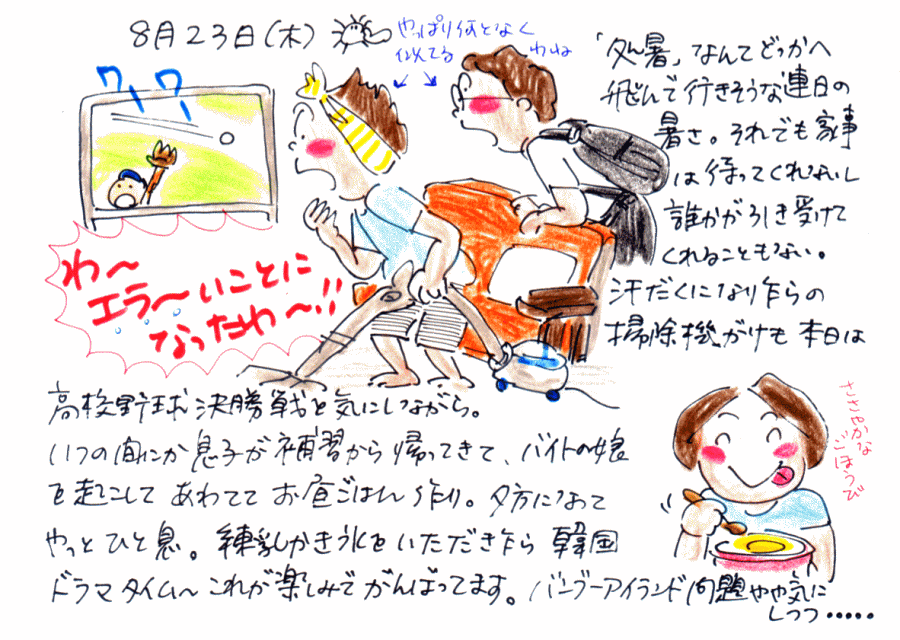 8月23日(木)
やっぱり何となく
似てる
わね
ワー ワー
わ〜
エラ〜いことに
なったわ〜!!
「処暑」なんてどっかへ
飛んで行きそうな連日の
暑さ。それでも家事
は待ってくれないし
誰かが引き受けて
くれることもない。
汗だくになり乍らの
掃除機がけも本日は
高校野球決勝戦を気にしながら。
いつの間にか息子が補習から帰ってきて、バイトの娘
を起こして あわてて お昼ごはん作り。夕方になって
やっとひと息。練乳かき氷をいただき乍ら 韓国
ドラマタイム〜これが楽しみでがんばってます。バンブーアイランド問題やや気に
しつつ・・・・・
ささやかな
ごほうび